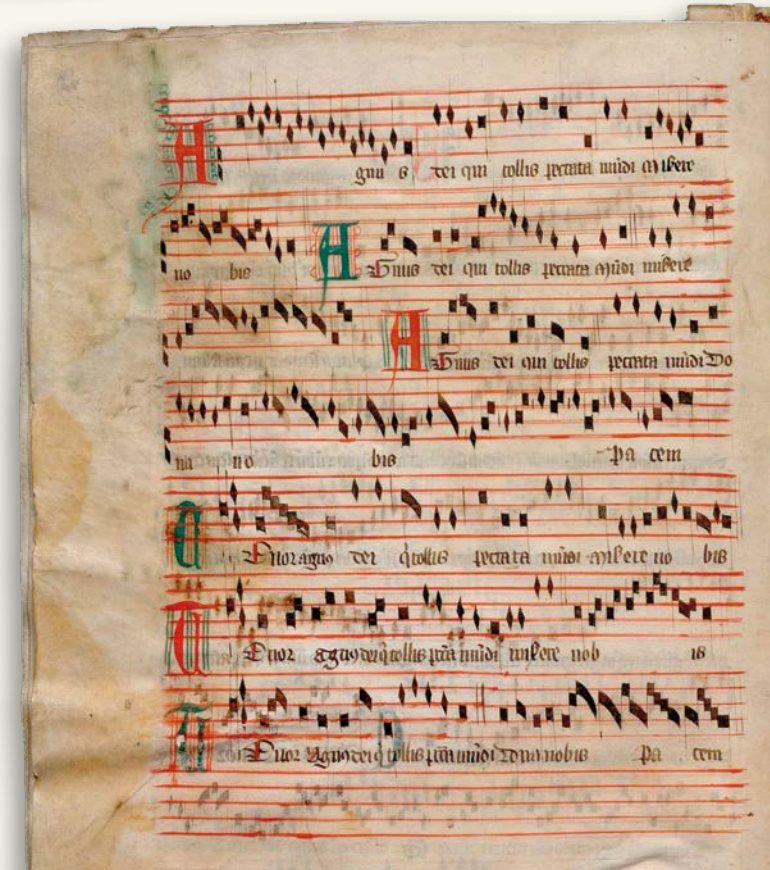 Agnu s dei qui tollis peccata mūdi Misere
no bis Agnus dei qui tollis peccata mūdi misere
Agnus dei qui tollis peccata mūdi Do
na no bis Pa cem
Tenor agnꝰ dei q̇ tollis peccata mūdi misere no bis
Tenor agnꝰ dei q̇ tollis pctā mūdi misere nob is
Tenor Agnꝰ dei q̇ tollis pctā mūdi Dona nobis Pa cem